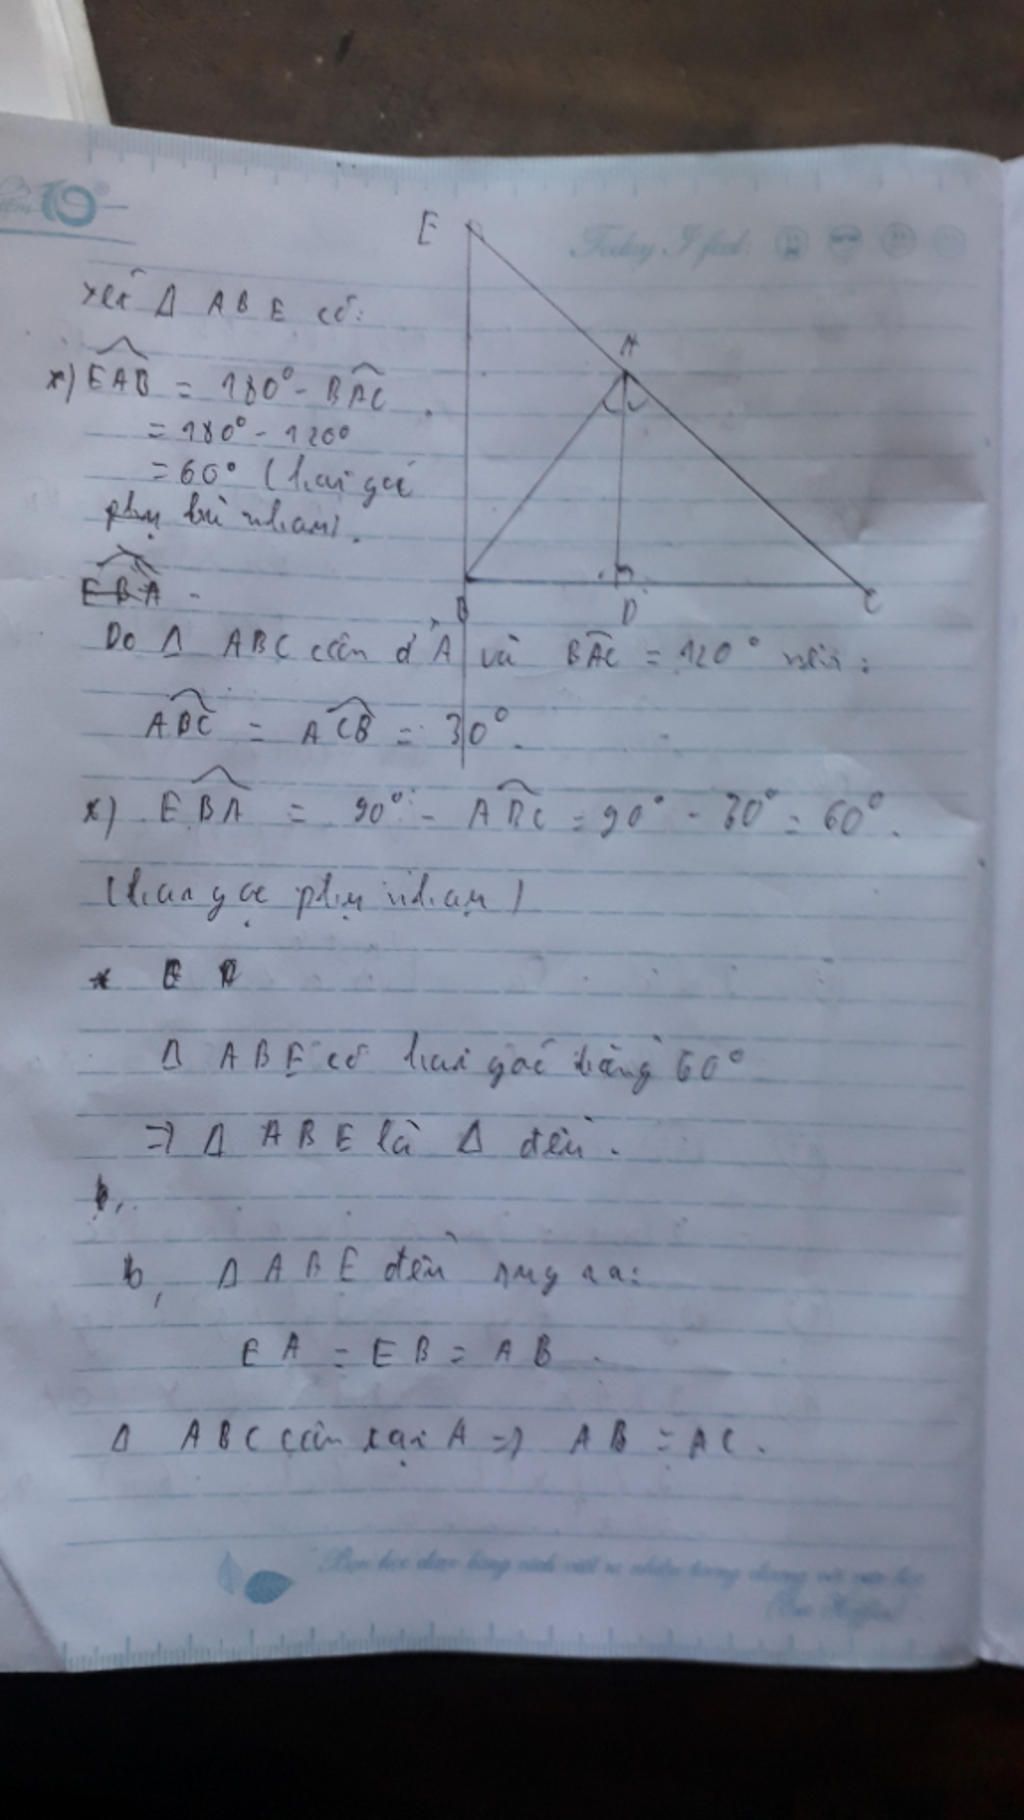 10
Today I feel:
E
A
B
D
C
Xét Δ ABE có:
*) EAB = 180° - BAC
= 180° - 120°
= 60° (hai góc
phụ bù nhau).
EBA
Do Δ ABC cân ở A và BAC = 120° nên:
ABC = ACB = 30°.
*) EBA = 90° - ABC = 90° - 30° = 60°.
(hai góc phụ nhau)
Δ ABE có hai góc bằng 60°
=> Δ ABE là Δ đều.
b,
b, Δ ABE đều suy ra:
EA = EB = AB.
Δ ABC cân tại A => AB = AC.